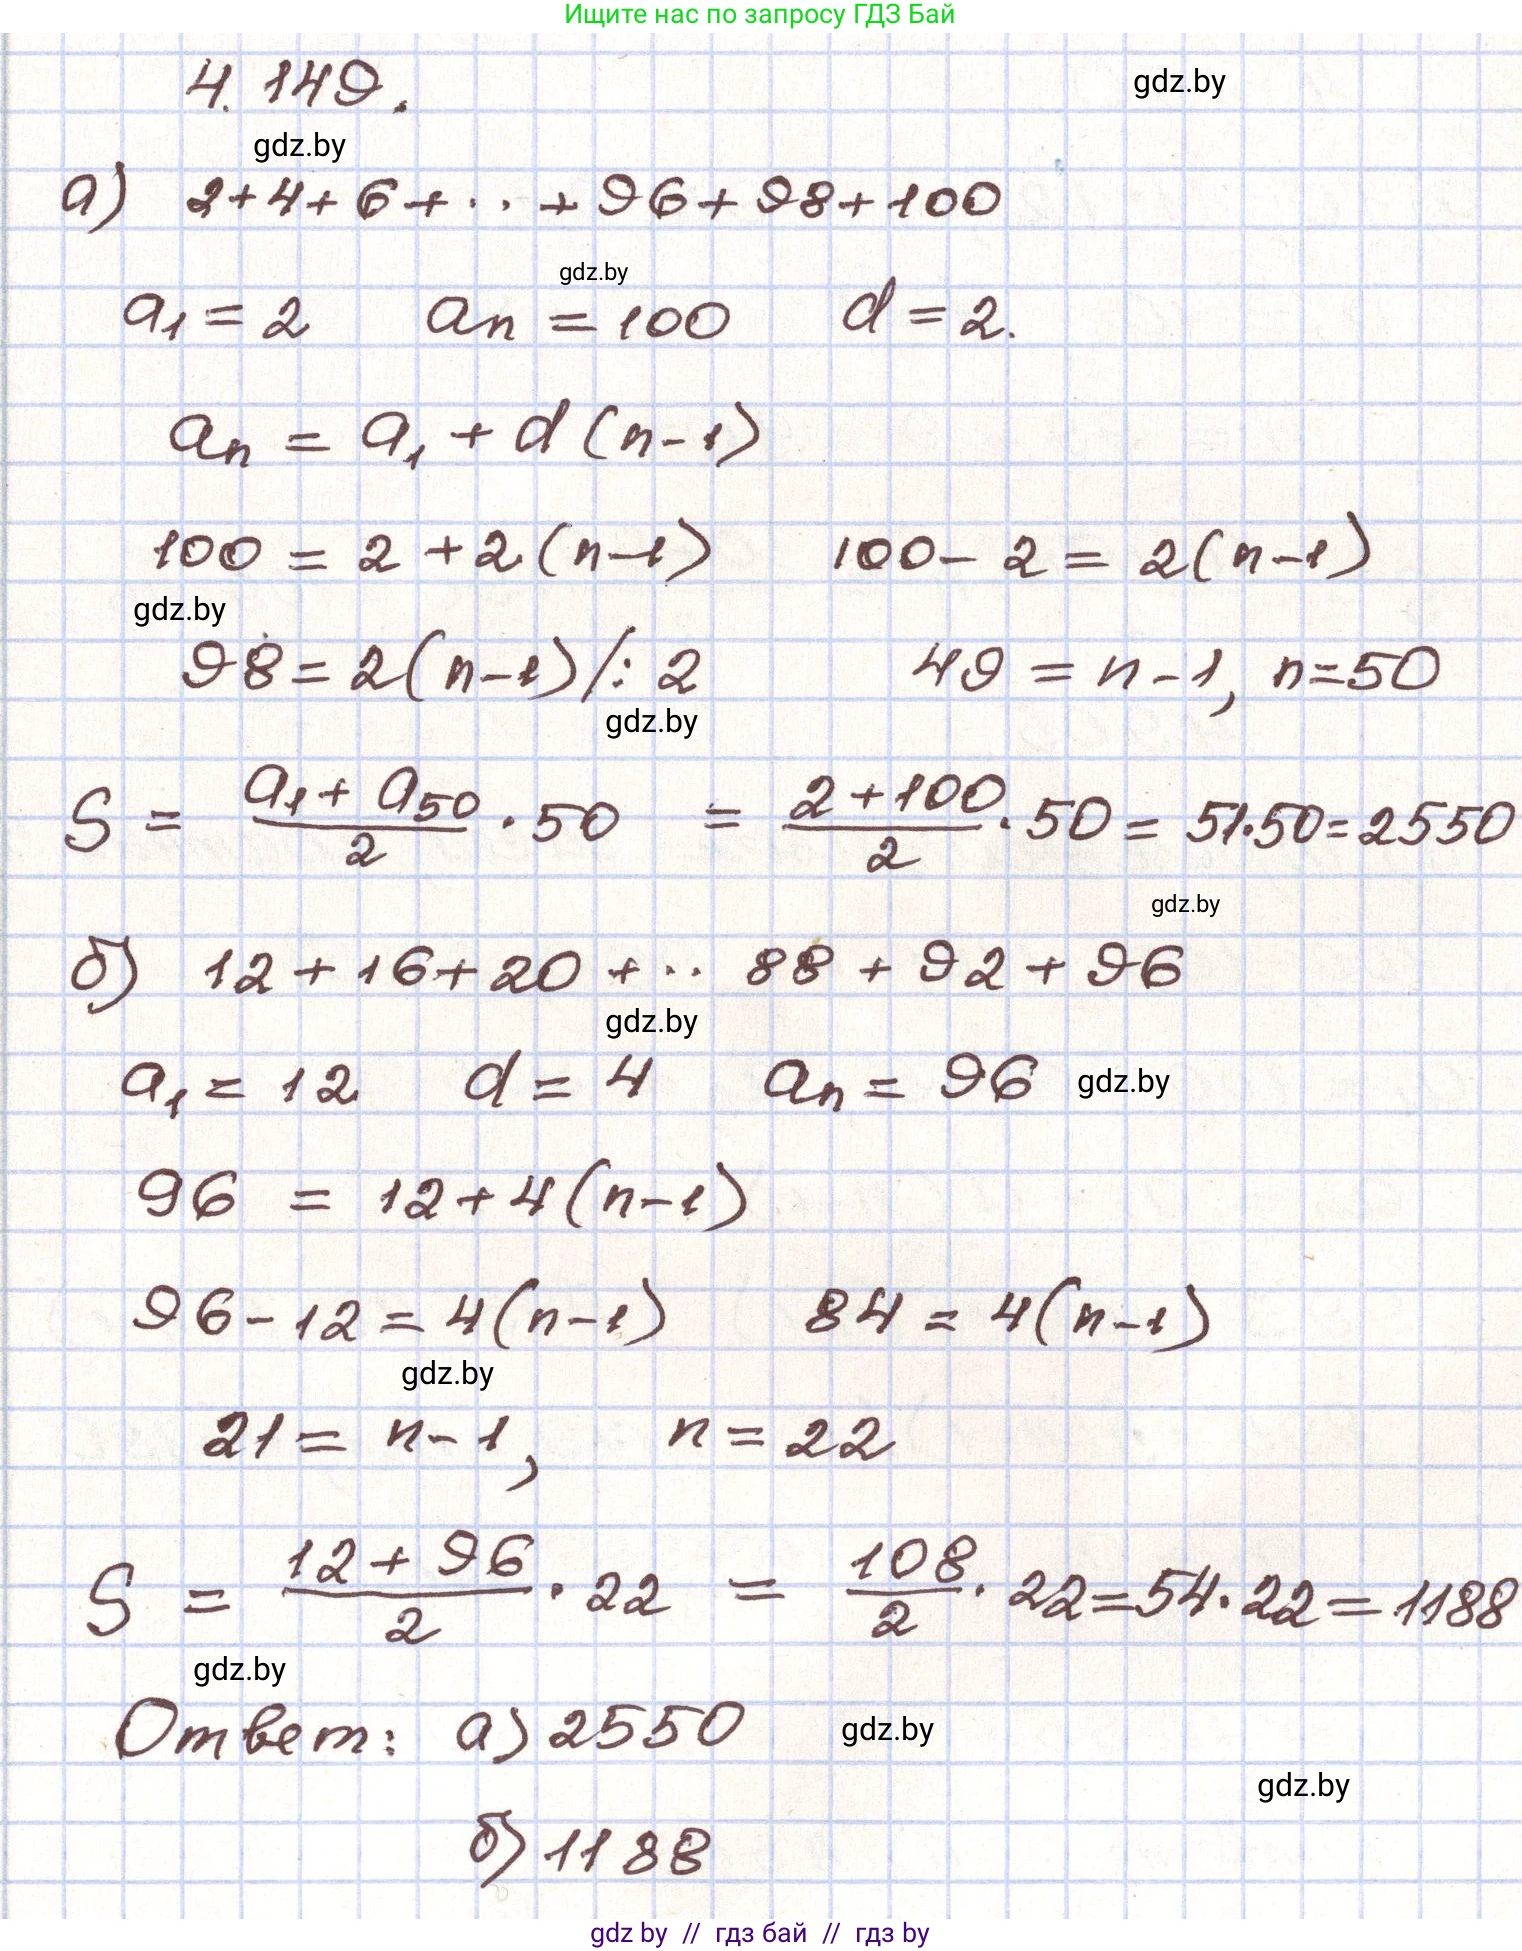 Ищите нас по запросу ГДЗ Бай
4.149.
gdz.by
gdz.by
а) 2+4+6+...+96+98+100
gdz.by
a₁ = 2 aₙ = 100 d = 2.
aₙ = a₁ + d(n-1)
100 = 2 + 2(n-1) 100 - 2 = 2(n-1)
gdz.by
98 = 2(n-1) /:2 49 = n-1, n=50
gdz.by
S = (a₁ + a₅₀)/2 · 50 = (2+100)/2 · 50 = 51·50 = 2550
gdz.by
б) 12+16+20+.. 88 + 92 + 96
gdz.by
a₁ = 12 d = 4 aₙ = 96 gdz.by
96 = 12+4(n-1)
96-12 = 4(n-1) 84 = 4(n-1)
gdz.by
21 = n-1, n = 22
S = (12 + 96)/2 · 22 = 108/2 · 22 = 54·22 = 1188
gdz.by
Ответ: а) 2550 gdz.by
gdz.by
б) 1188
gdz by // гдз бай // гдз by